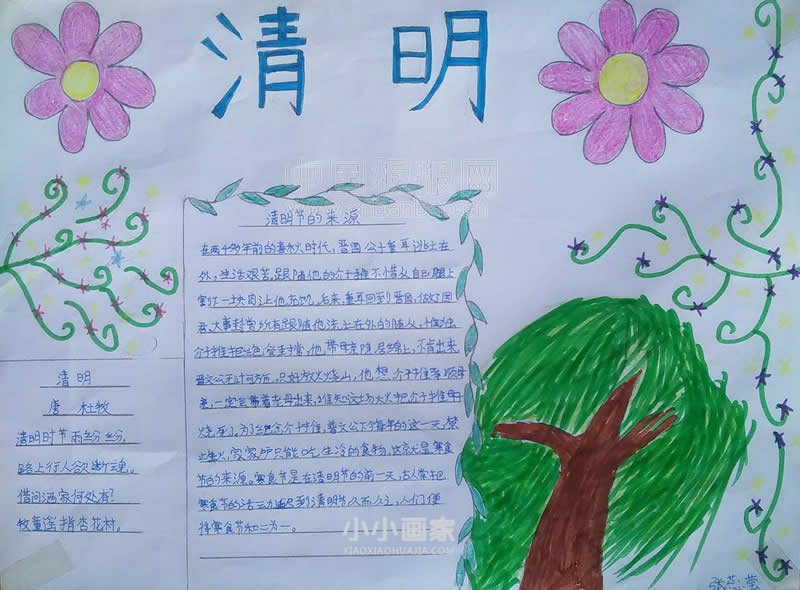 清明
清明节的来源
在两千多年前的春秋时代，晋国公子重耳逃亡在
外，生活艰苦，跟随他的介子推不惜从自己腿上
割下一块肉让他充饥。后来，重耳回到晋国，做了国
君，大事封赏所有跟随他流亡在外的随从，惟独
介子推拒绝受封赏，他带母亲隐居绵山，不肯出来
晋文公无计可施，只好放火烧山，他想，介子推孝顺母
亲，一定会带着老母出来。谁知这场大火把介子推母
烧死了。为了纪念介子推，晋文公下令每年的这一天，禁
止生火，家家户户只能吃生冷的食物，这就是寒食
节的来源。寒食节是在清明节的前一天，古人常把
寒食节的活动延到清明节，久而久之，人们便
将寒食节和二为一。
清明
唐 杜牧
清明时节雨纷纷，
路上行人欲断魂。
借问酒家何处有？
牧童遥指杏花村。
小小画家
XIAOXIAOHUAJIA.COM
张蕊莹